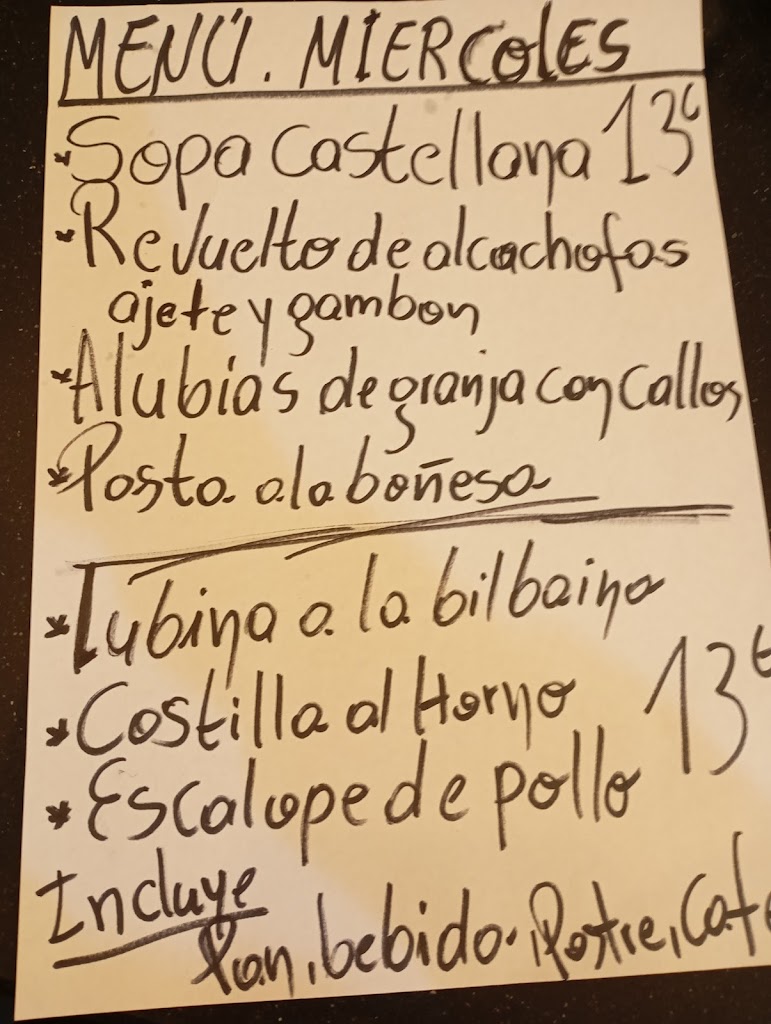 MENÚ. MIERCOLES
* Sopa Castellana 13€
* Revuelto de alcachofas
ajete y gambon
* Alubias de granja con Callos
* Pasta a la boñesa
* Lubina a la bilbaina
* Costilla al Horno 13€
* Escalope de pollo
Incluye
Pan, bebida, Postre, Cafe